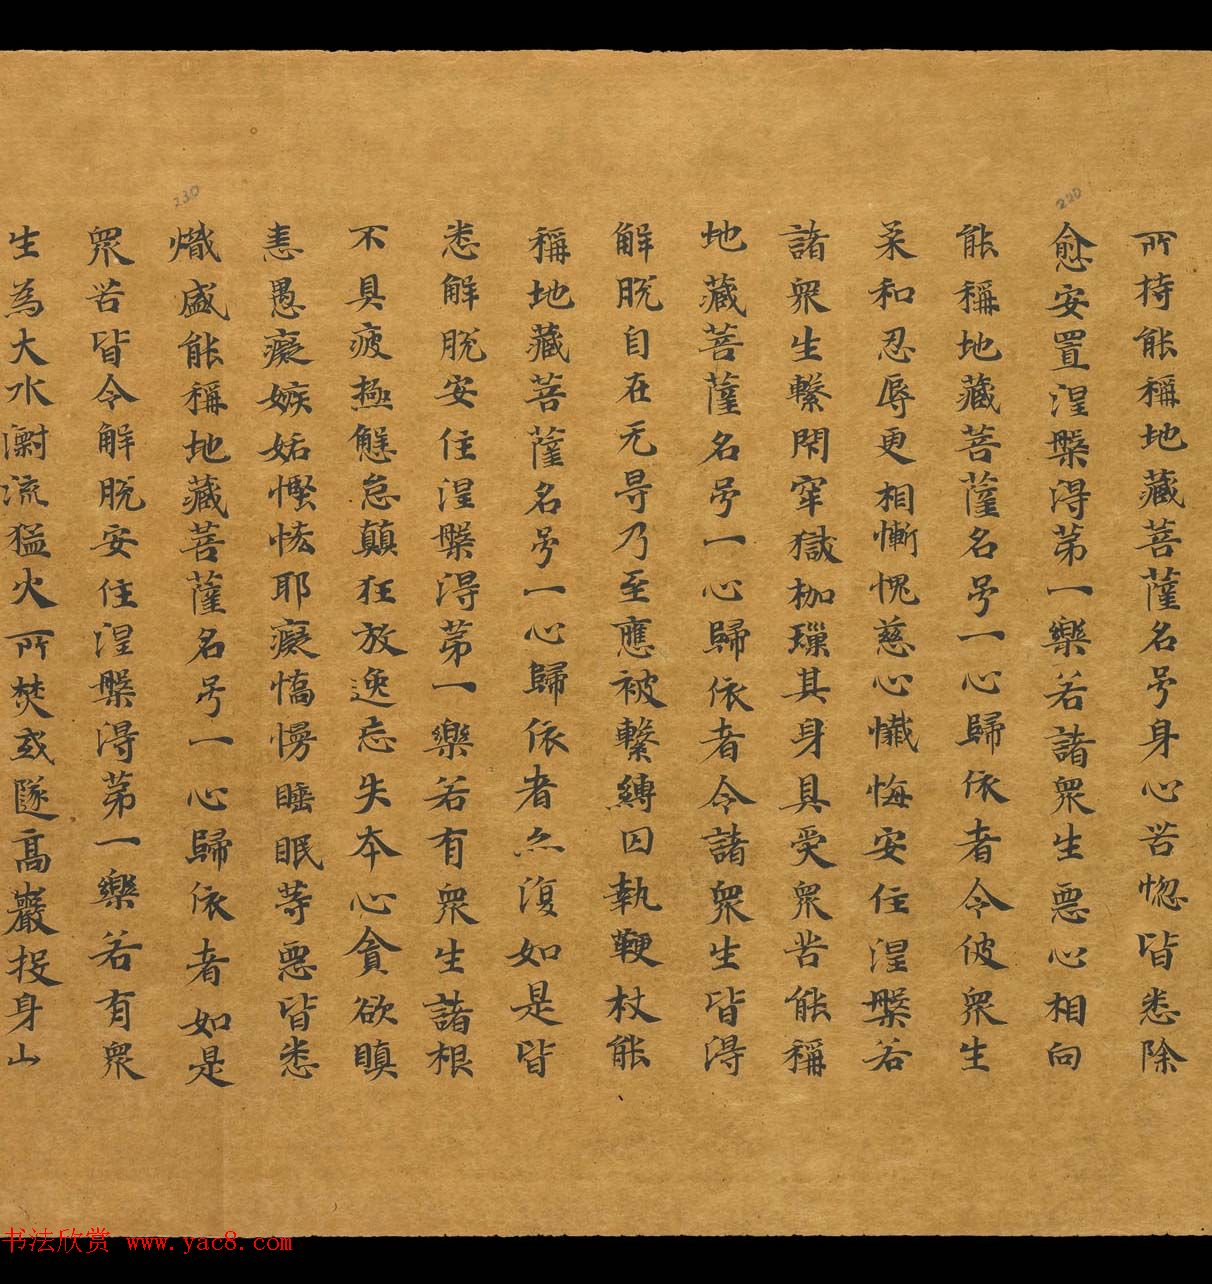 所持能稱地藏菩薩名号身心苦惚皆悉除
愈安置涅槃得第一樂若諸衆生惡心相向
能稱地藏菩薩名号一心歸依者令彼衆生
柔和忍辱更相慚愧慈心懺悔安住涅槃若
諸衆生繫閇窂獄枷璅其身具受衆苦能稱
地藏菩薩名号一心歸依者令諸衆生皆得
解脫自在无㝵乃至應被繫縛囚執鞭杖能
稱地藏菩薩名号一心歸依者亦復如是皆
悉解脫安住涅槃得第一樂若有衆生諸根
不具疲極懈怠顛狂放逸忘失本心貪欲瞋
恚愚癡嫉妬慳悋耶癡憍慢睡眠等惡皆悉
熾盛能稱地藏菩薩名号一心歸依者如是
衆苦皆令解脫安住涅槃得第一樂若有衆
生為大水㵕流猛火所焚或墜高巖投身山
230
220
书法欣赏 www.yac8.com